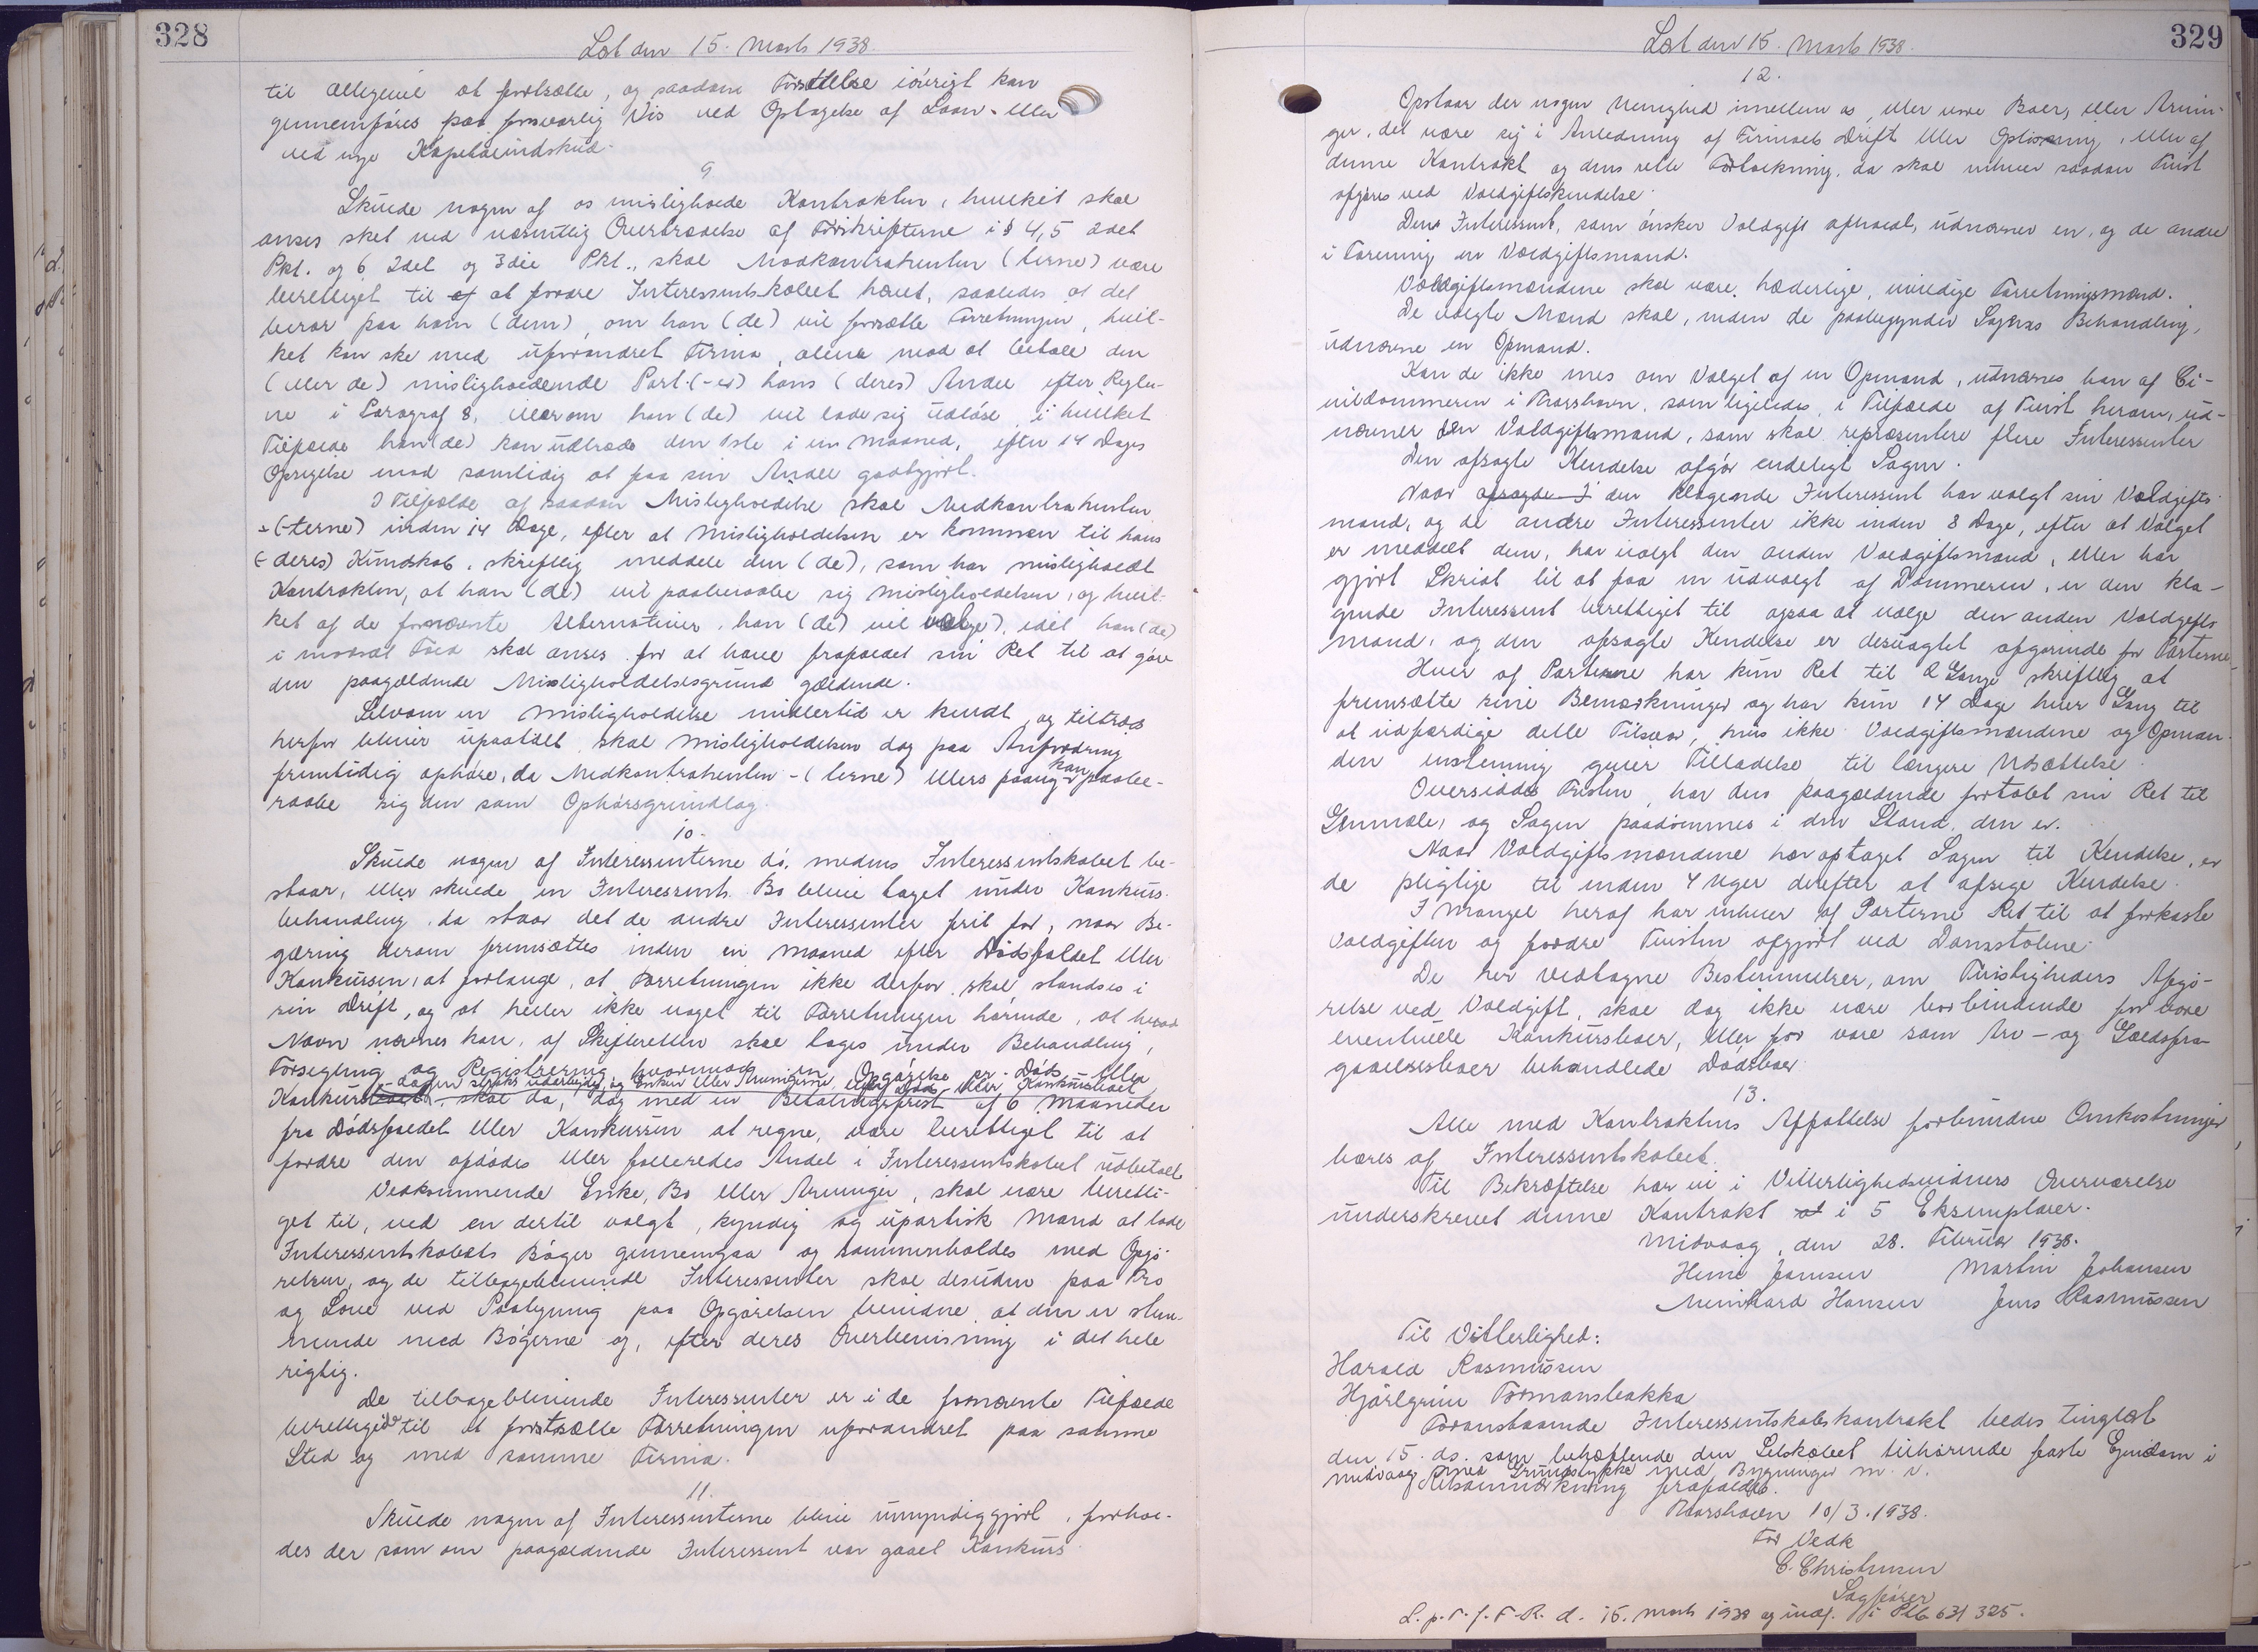 328
Læst den 15. Marts 1938.
til alligevel at fortsætte, og saadan Fortsættelse iøvrigt kan
gennemføres paa forsvarlig Vis ved Optagelse af Laan- eller
ved nye Kapitalindskud.
9
Skulde nogen af os misligholde Kontrakten, hvilket skal
anses sket ved væsentlig Overtrædelse af Forskrifterne i § 4, 5 2det
Pkt. og 6 2det og 3die Pkt., skal Medkontrahenten (terne) være
berettiget til at at fordre Interessentskabet hævet, saaledes at det
beror paa ham (dem), om han (de) vil fortsætte Forretningen, hvil-
ket kan ske med uforandret Firma, alene mod at betale den
(eller de) misligholdende Part-(-er) hans (deres) Andel efter Regler-
ne i Paragraf 8, eller om han (de) vil lade sig udløse, i hvilket
Tilfælde han (de) kan udtræde den 1ste i en Maaned, efter 14 Dages
Opsigelse mod samtidig at faa sin Andel godtgjort.
I Tilfælde af saadan Misligholdelse skal Medkontrahenten
- (-terne) inden 14 Dage, efter at Misligholdelsen er kommen til hans
(-deres) Kundskab, skriftlig meddele den (de), som har misligholdt
Kontrakten, at han (de) vil paaberaabe sig Misligholdelsen, og hvil-
ket af de fornævnte Alternativer, han (de) vil vælge), idet han (de)
i modsat Fald skal anses for at have frafaldet sin Ret til at gøre
den paagældende Misligholdelsesgrund gældende.
Selvom en Misligholdelse imidlertid er kendt, og tiltrods
herfor bliver upaatalt, skal Misligholdelsen dog paa Anfordring
fremtidig ophøre, da Medkontrahenten - (terne) ellers paany kan paabe-
raabe sig den som Ophørsgrundlag.
10.
Skulde nogen af Interessenterne dø, medens Interessentskabet be-
staar, eller skulde en Interessents Bo blive taget under Konkurs-
behandling, da staar det de andre Interessenter frit for, naar Be-
gæring derom fremsættes inden en Maaned efter Dødsfaldet eller
Konkursen, at forlange, at Forretningen ikke derfor skal standses i
sin Drift, og at heller ikke noget til Forretningen hørende, at hvad
Navn nævnes kan, af Skifteretten skal tages under Behandling,
Forsegling og Registrering, hvorimod en Opgørelse pr. Døds- eller
-dagen straks udarbejdes, og Enken eller Arvingerne, eller Døds- eller Konkursboet
Konkursboet, skal da, dog med en Betalingsfrist af 6 Maaneder
fra Dødsfaldet eller Konkursen at regne, være berettiget til at
fordre den afdødes eller falleredes Andel i Interessentskabet udbetalt.
Vedkommende Enke, Bo eller Arvinger, skal være beretti-
get til, ved en dertil valgt, kyndig og upartisk Mand at lade
Interessentskabets Bøger gennemgaa og sammenholdes med Opgø-
relsen, og de tilbageblivende Interessenter skal desuden paa Tro
og Love ved Paategning paa Opgørelsen bevidne, at den er stem-
mende med Bøgerne og, efter deres Overbevisning i det hele
rigtig.
De tilbageblivende Interessenter er i de fornævnte Tilfælde
berettigede til at fortsætte Forretningen uforandret paa samme
Sted og med samme Firma.
11.
Skulde nogen af Interessenterne blive umyndiggjort, forhol-
des der som om paagældende Interessent var gaaet Konkurs.
329
Læst den 15. Marts 1938.
12.
Opstaar der nogen Uenighed imellem os, eller vore Boer, eller Arvin-
ger, det være sig i Anledning af Firmaets Drift eller Opløsning, eller af
denne Kontrakt og dens rette Fortolkning, da skal enhver saadan Tvist
afgøres ved Voldgiftskendelse.
Den Interessent, som ønsker Voldgift afholdt, udnævner en, og de andre
i Forening en Voldgiftsmand.
Voldgiftsmændene skal være hæderlige, uvildige Forretningsmænd.
De valgte Mænd skal, inden de paabegynder Sagens Behandling,
udnævne en Opmand.
Kan de ikke enes om Valget af en Opmand, udnævnes han af Ci-
vildommeren i Thorshavn, som ligeledes, i Tilfælde af Tvist herom, ud-
nævner den Voldgiftsmand, som skal repræsentere flere Interessenter
Den afsagte Kendelse afgør endeligt Sagen.
Naar afsagde I den klagende Interessent har valgt sin Voldgifts-
mand, og de andre Interessenter ikke inden 8 Dage, efter at Valget
er meddelt dem, har valgt den anden Voldgiftsmand, eller har
gjort Skridt til at faa en udvalgt af Dommeren, er den kla-
gende Interessent berettiget til ogsaa at vælge den anden Voldgifts
mand, og den afsagte Kendelse er desuagtet afgørende for Parterne.
Hver af Parterne har kun Ret til 2 Gange skriftlig at
fremsætte sine Bemærkninger og har kun 14 Dage hver Gang til
at udfærdige dette Tilsvar, hvis ikke Voldgiftsmændene og Opman-
den enstemmig giver Tilladelse til længere Udsættelse.
Oversiddes Fristen, har den paagældende fortabt sin Ret til
Genmæle, og Sagen paadømmes i den Stand, den er.
Naar Voldgiftsmændene har optaget Sagen til Kendelse, er
de pligtige til inden 4 Uger derefter at afsige Kendelse.
I Mangel heraf har enhver af Parterne Ret til at forkaste
Voldgiften og fordre Tvisten afgjort ved Domstolene.
De her vedtagne Bestemmelser, om Tvistigheders Afgø-
relse ved Voldgift, skal dog ikke være bor bindende for vore
eventuelle Konkursboer, eller for vore som Arv- og Gældsfra-
gaaelsesboer behandlede Dødsboer.
13.
Alle med Kontraktens Affattelse forbundne Omkostninger
bæres af Interessentskabet.
Til Bekræftelse har vi i Vitterlighedsvidners Overværelse
underskrevet denne Kontrakt at i 5 Eksemplarer.
Midvaag, den 28. Februar 1938.
Heini Joensen Martin Johansen
Meinhard Hansen Jens Rasmussen
Til Vitterlighed:
Harald Rasmussen
Hjørlgrim Formansbakka
Foranstaaende Interessentskabskontrakt bedes tinglæst
den 15. ds. som behæftende den Selskabet tilhørende faste Ejendom i
Midvaag med Grundstykke med Bygninger m. v.
Retsanmærkning frafaldes.
Thorshavn 10/3. 1938.
For Vedk
C. Christensen
Sagfører
L. p. T. f. F. R. d. 15. Marts 1938 og indf. i Ptb 631 325.